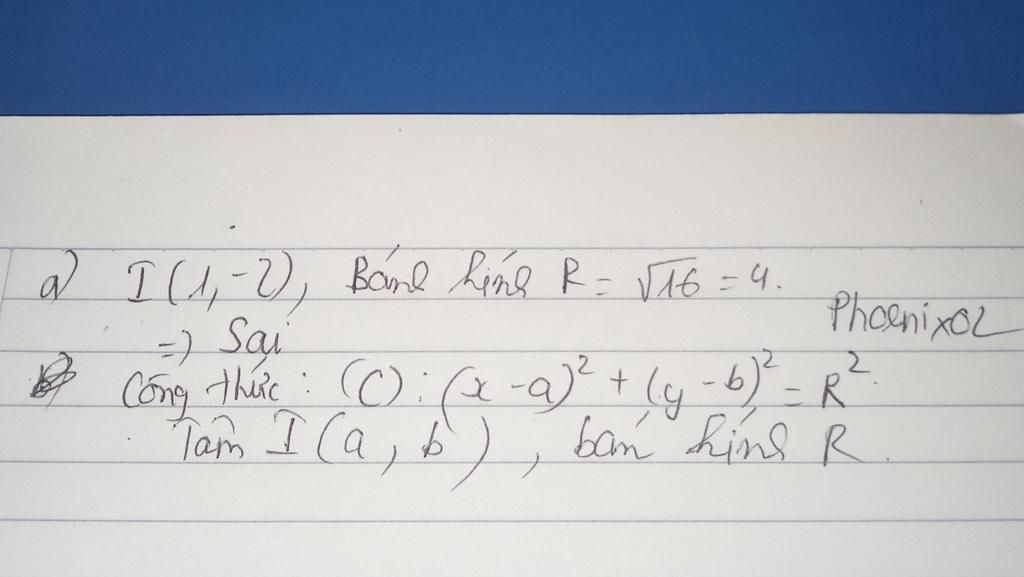 a) I(1,-2), Bánh kính R = √16 = 4.
=) Sai
Phoenix02
Công thức : (C) : (x - a)² + (y - b)² = R².
Tâm I(a, b), bán kính R.